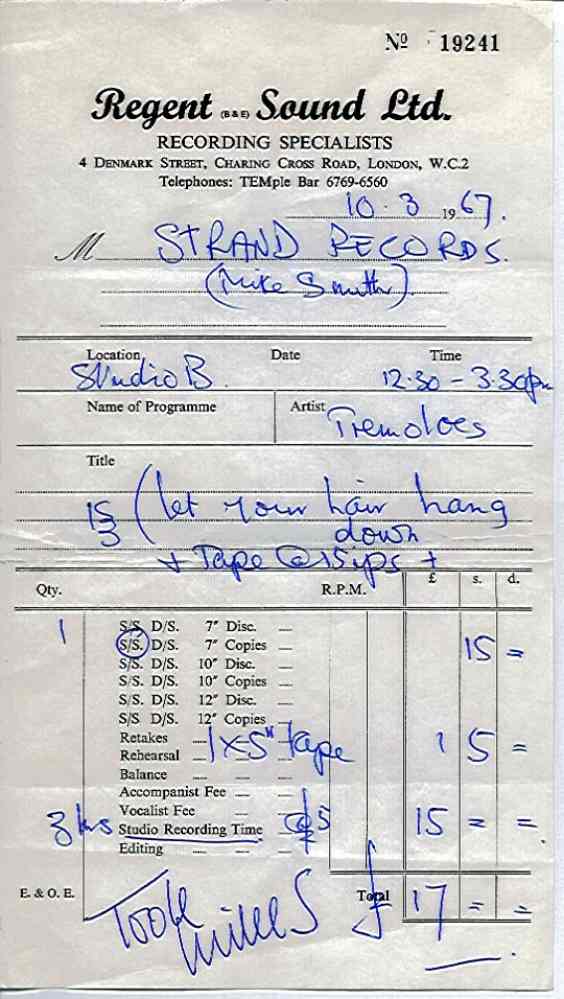 Nº 19241
Regent (B & E) Sound Ltd.
RECORDING SPECIALISTS
4 DENMARK STREET, CHARING CROSS ROAD, LONDON, W.C.2
Telephones: TEMple Bar 6769-6560
10 . 3 1967.
M STRAND RECORDS.
(Mike Smith)
Location Date Time
Studio B. 12.30 - 3.30pm
Name of Programme Artist Tremoloes
Title
15 (let your hair hang
3 down
+ Tape @ 15 ips +
Qty. R.P.M. £ s. d.
1 S/S. D/S. 7" Disc.
S/S. D/S. 7" Copies 15 =
S/S. D/S. 10" Disc.
S/S. D/S. 10" Copies
S/S. D/S. 12" Disc.
S/S. D/S. 12" Copies
Retakes
Rehearsal 1 x 5" tape 1 5 =
Balance
Accompanist Fee
Vocalist Fee
3 hrs Studio Recording Time @ £5 15 = =
Editing
E. & O. E. Total £ 17 = =